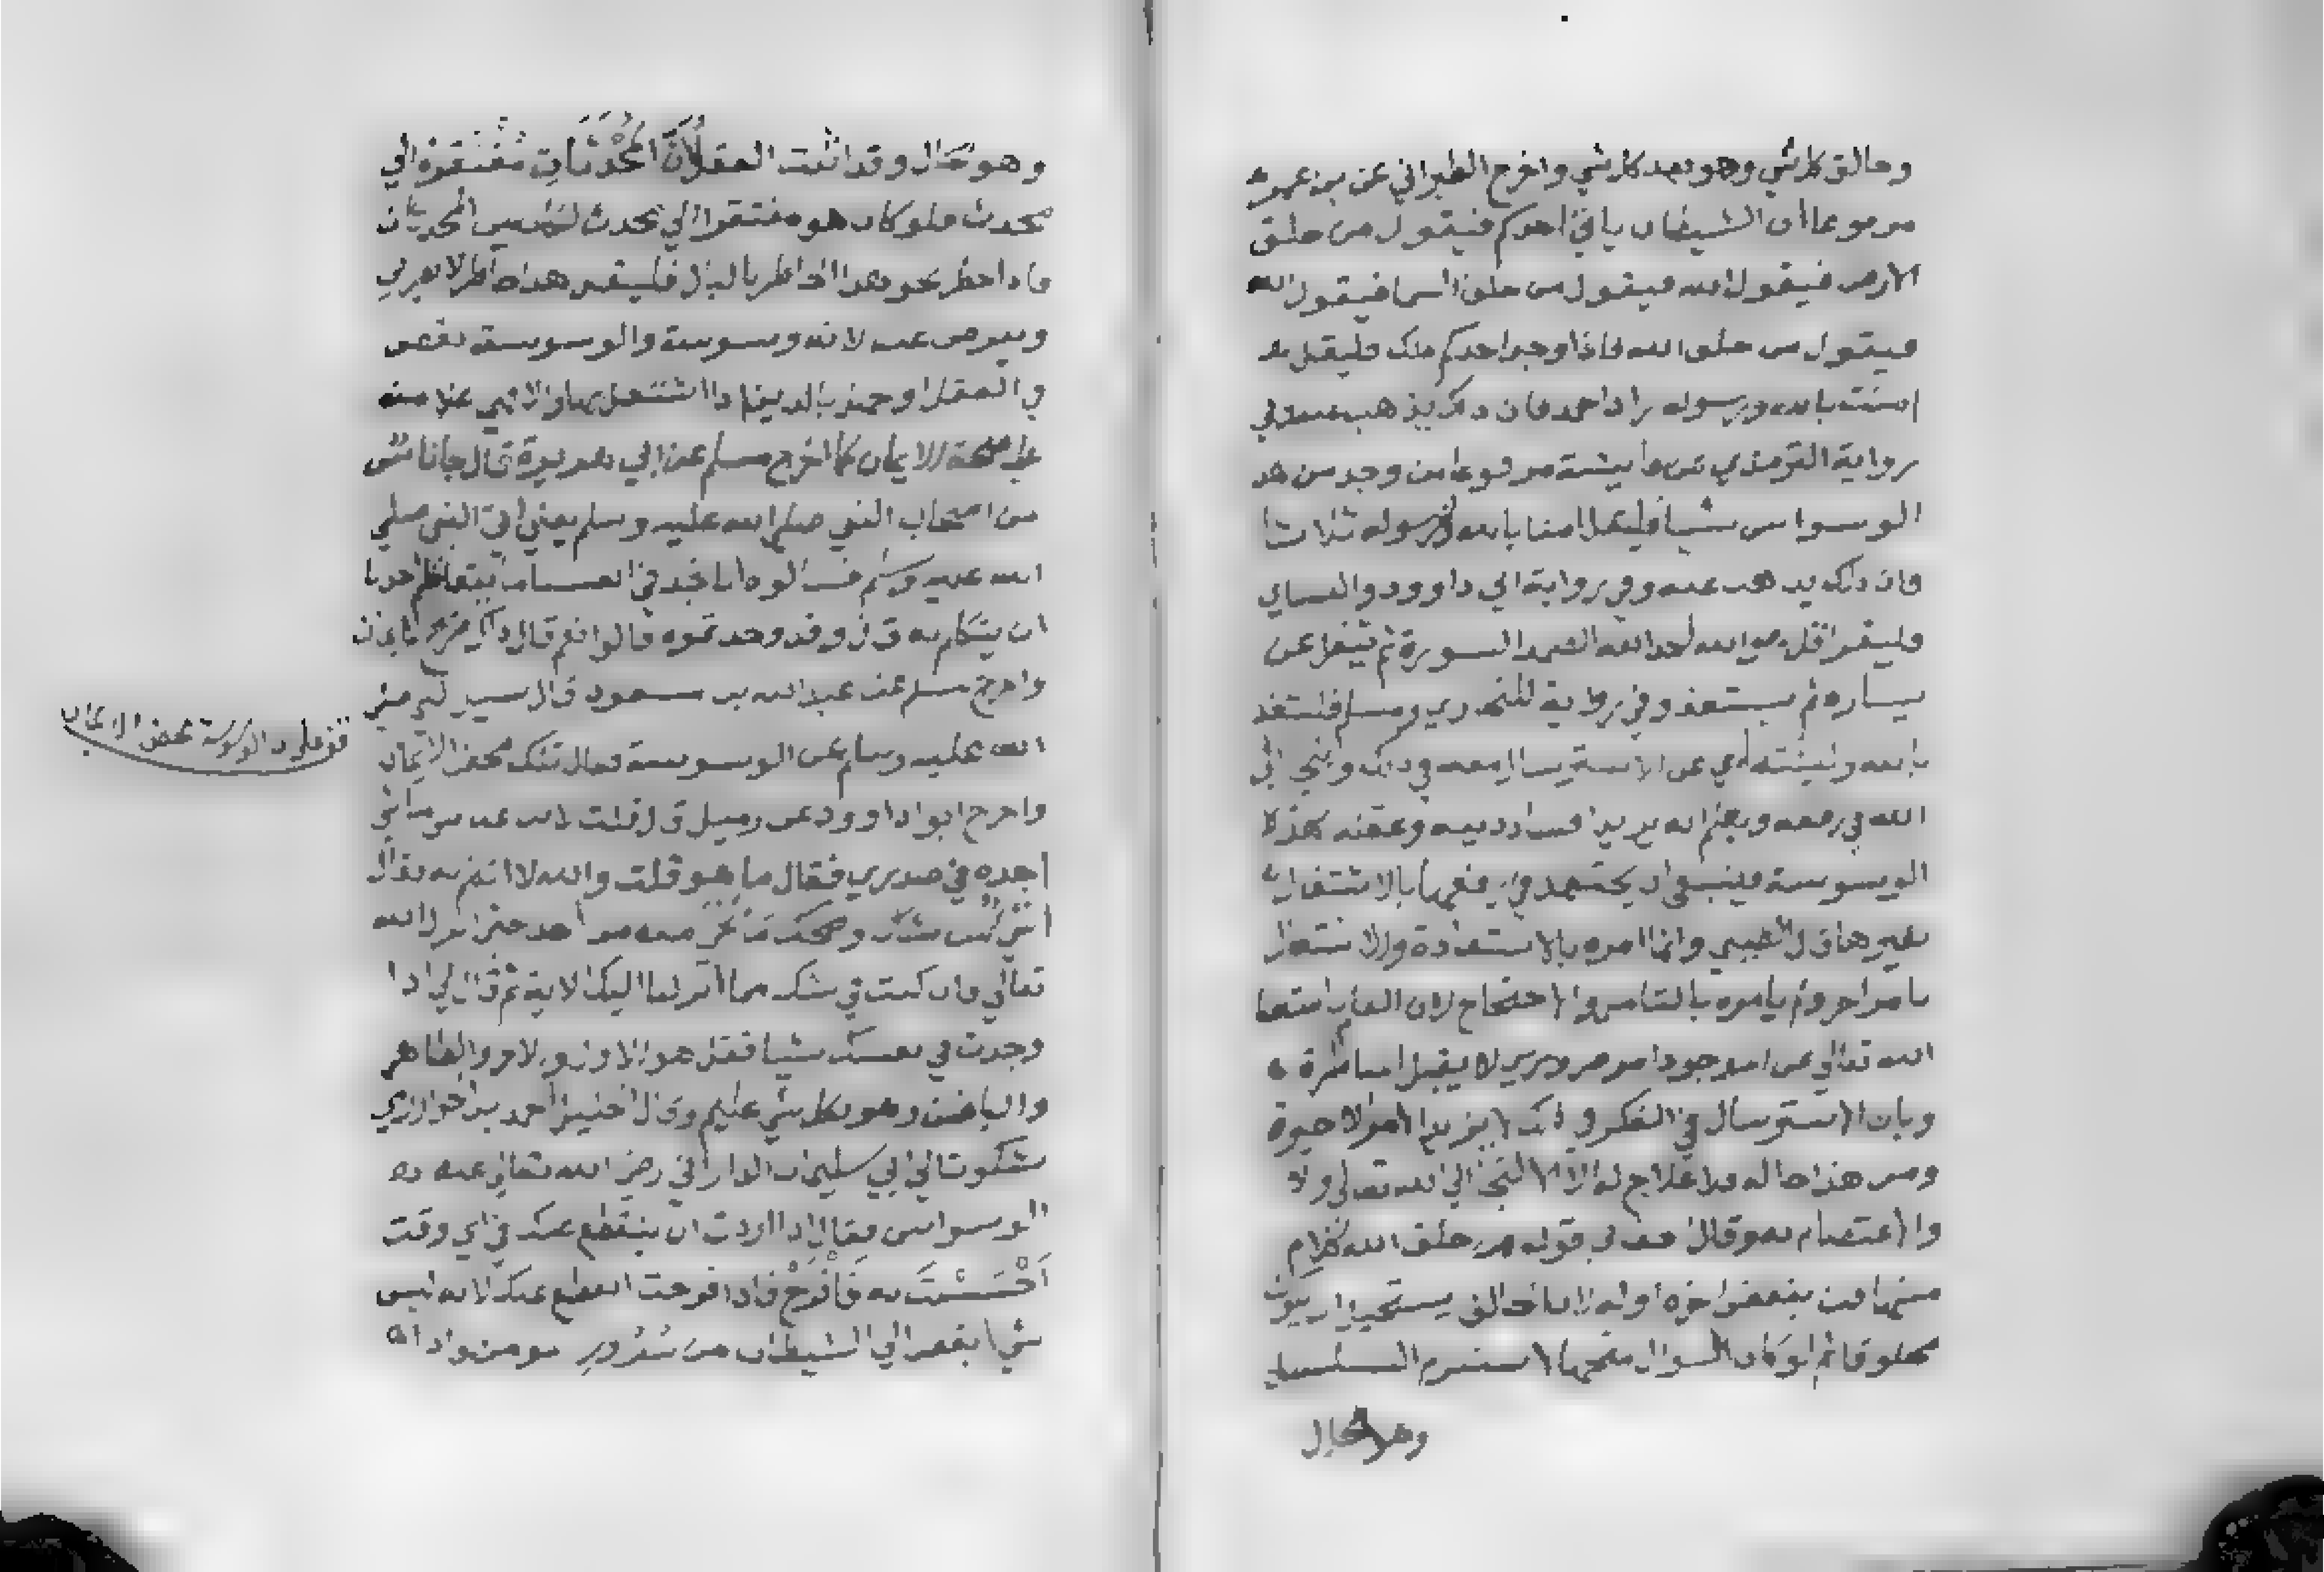 وخالق كل شي وهو بعد كل شي واخرج الطبراني عن بن عمرو
مرفوعا ان الشيطان ياتي احدكم فيقول من خلق
الارض فيقول الله فيقول من خلق السما فيقول الله
فيقول من خلق الله فاذا وجد احدكم ذلك فليقل
امنت بالله ورسوله زاد احمد فان ذلك يذهب عنه وفي
رواية الترمذي عن عايشة مرفوعا من وجد من هذ
الوسواس شيا فليقل امنا بالله ورسوله ثلاثا
فان ذلك يذهب عنه وفي رواية ابي داوود والنساي
فليقرا قل هو الله احد الله الصمد السورة ثم يتفل عن
يساره ثم يستعذ وفي رواية للبخاري ومسلم فليستعذ
بالله ولينته اي عن الاسترسال معه في ذلك ويلتجا الي
الله في دفعه ويعلم انه يريد افساد دينه وعقله بهذه
الوسوسة فينبغي ان يجتهد في دفعها بالاشتغال
بغيرها قال الطيبي وانما امره بالاستعاذة والاشتغال
بامر اخر ولم يامره بالتامل والاحتجاج لان العلم باستغنا
الله تعالي عن الموجد امر ضروري لا يقبل المناظرة
وبان الاسترسال في الفكر في ذلك لا يزيد المرا الا حيرة
ومن هذا حاله فلا علاج له الا الالتجا الي الله تعالي ولا
والاعتصام به وقال في قوله من خلق الله كلام
متهافت ينقض اخره اوله لان الخالق يستحيل ان يكون
مخلوقا ثم لو كان السوال متجها لاستلزم التسلسل
وهو محال
وهو محال وقد اثبت العقل ان المحدثات مفتقرة الي
محدث فلو كان هو مفتقرا الي محدث لكان من المحدثات
فاذا خطر نحو هذا الخاطر بالبال فليقل هذا خاطر لا يعرض
ويعرض عنه لانه وسوسة والوسوسة نقص
في العقل او جنة بالدين اذا اشتغل بها والا فهي علامة
علي صحة الايمان كما اخرج مسلم عن ابي هريرة قال جا ناس
من اصحاب النبي صلي الله عليه وسلم يعني الي النبي صلي
الله عليه وسلم فسالوه انا نجد في انفسنا ما يتعاظم احدنا
ان يتكلم به قال وقد وجدتموه قالوا نعم قال ذاك صريح الايمان
واخرج مسلم عن عبد الله بن مسعود قال سيل النبي صلي
الله عليه وسلم عن الوسوسة فقال تلك محض الايمان
واخرج ابو داوود عن زميل قال قلت لابن عباس ما شي
اجده في صدري فقال ما هو قلت والله لا اتكلم به فقال
اشي من شك وضحك ما نجي منه من احد حتي انزل الله
تعالي فان كنت في شك مما انزلنا اليك الاية ثم قال لي اذا
وجدت في نفسك شيا فقل هو الاول والاخر والظاهر
والباطن وهو بكل شي عليم وقال احمد بن ابي الحواري
شكوت الي ابي سليمان الداراني رضي الله تعالي عنه
الوسواس فقال اذا اردت ان ينقطع عنك في اي وقت
اَحْسَسْتَ به فَافْرَحْ فاذا فرحت انقطع عنك لانه ليس
شي ابغض الي الشيطان من سُرُورِ مومن واذا
قف علي ان الوسوسة محض الايمان